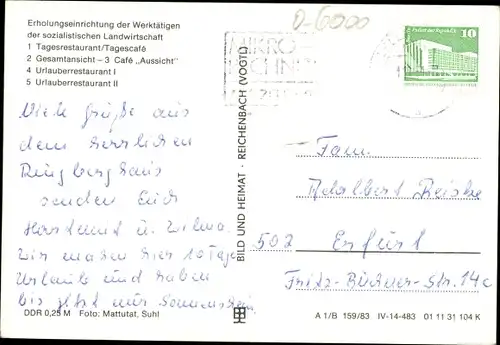 Erholungseinrichtung der Werktätigen
der sozialistischen Landwirtschaft
1 Tagesrestaurant/Tagescafé
2 Gesamtansicht - 3 Café „Aussicht"
4 Urlauberrestaurant I
5 Urlauberrestaurant II
0-6000
MIKRO-
10
Viele Grüße aus
dem herrlichen
Ringberghaus
senden Euch
Hartmut u. Wilma.
Wir machen hier 10 Tage
Urlaub und haben
bis jetzt nur Sonnenschein.
BILD UND HEIMAT · REICHENBACH (VOGTL)
Fam.
Adalbert
502 Erfurt
Fritz-Büchner-Str. 14c
DDR 0,25 M Foto: Mattutat, Suhl
A 1/B 159/83 IV-14-483 01 11 31 104 K